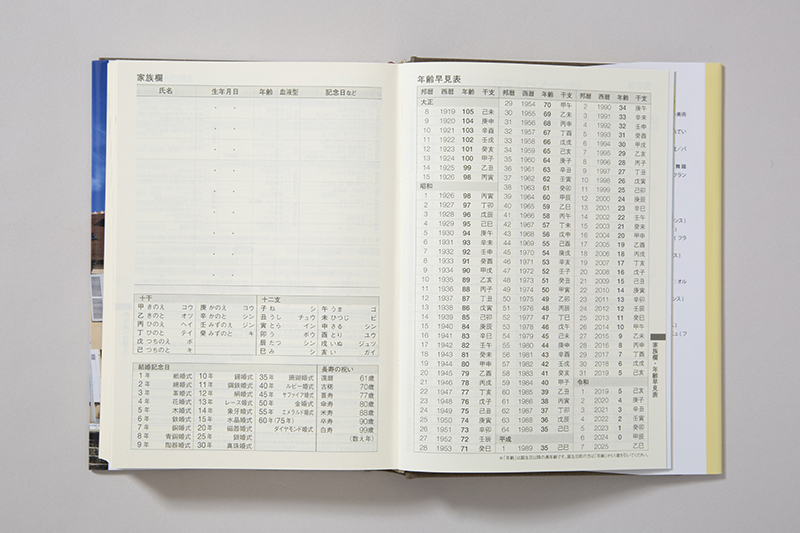 家族欄
氏名 生年月日 年齢 血液型 記念日など
十干
甲 きのえ コウ 庚 かのえ コウ
乙 きのと オツ 辛 かのと シン
丙 ひのえ ヘイ 壬 みずのえ ジン
丁 ひのと テイ 癸 みずのと キ
戊 つちのえ ボ
己 つちのと キ
十二支
子 ね シ 午 うま ゴ
丑 うし チュウ 未 ひつじ ビ
寅 とら イン 申 さる シン
卯 う ボウ 酉 とり ユウ
辰 たつ シン 戌 いぬ ジュツ
巳 み シ 亥 い ガイ
結婚記念日
1年 紙婚式 10年 錫婚式 35年 珊瑚婚式
2年 綿婚式 11年 鋼鉄婚式 40年 ルビー婚式
3年 革婚式 12年 絹婚式 45年 サファイア婚式
4年 花婚式 13年 レース婚式 50年 金婚式
5年 木婚式 14年 象牙婚式 55年 エメラルド婚式
6年 鉄婚式 15年 水晶婚式 60年(75年)
7年 銅婚式 20年 磁器婚式 ダイヤモンド婚式
8年 青銅婚式 25年 銀婚式
9年 陶器婚式 30年 真珠婚式
長寿の祝い
還暦 61歳
古稀 70歳
喜寿 77歳
傘寿 80歳
米寿 88歳
卒寿 90歳
白寿 99歳
(数え年)
年齢早見表
邦暦 西暦 年齢 干支
大正
8 1919 105 己未
9 1920 104 庚申
10 1921 103 辛酉
11 1922 102 壬戌
12 1923 101 癸亥
13 1924 100 甲子
14 1925 99 乙丑
15 1926 98 丙寅
昭和
1 1926 98 丙寅
2 1927 97 丁卯
3 1928 96 戊辰
4 1929 95 己巳
5 1930 94 庚午
6 1931 93 辛未
7 1932 92 壬申
8 1933 91 癸酉
9 1934 90 甲戌
10 1935 89 乙亥
11 1936 88 丙子
12 1937 87 丁丑
13 1938 86 戊寅
14 1939 85 己卯
15 1940 84 庚辰
16 1941 83 辛巳
17 1942 82 壬午
18 1943 81 癸未
19 1944 80 甲申
20 1945 79 乙酉
21 1946 78 丙戌
22 1947 77 丁亥
23 1948 76 戊子
24 1949 75 己丑
25 1950 74 庚寅
26 1951 73 辛卯
27 1952 72 壬辰
28 1953 71 癸巳
邦暦 西暦 年齢 干支
29 1954 70 甲午
30 1955 69 乙未
31 1956 68 丙申
32 1957 67 丁酉
33 1958 66 戊戌
34 1959 65 己亥
35 1960 64 庚子
36 1961 63 辛丑
37 1962 62 壬寅
38 1963 61 癸卯
39 1964 60 甲辰
40 1965 59 乙巳
41 1966 58 丙午
42 1967 57 丁未
43 1968 56 戊申
44 1969 55 己酉
45 1970 54 庚戌
46 1971 53 辛亥
47 1972 52 壬子
48 1973 51 癸丑
49 1974 50 甲寅
50 1975 49 乙卯
51 1976 48 丙辰
52 1977 47 丁巳
53 1978 46 戊午
54 1979 45 己未
55 1980 44 庚申
56 1981 43 辛酉
57 1982 42 壬戌
58 1983 41 癸亥
59 1984 40 甲子
60 1985 39 乙丑
61 1986 38 丙寅
62 1987 37 丁卯
63 1988 36 戊辰
64 1989 35 己巳
平成
1 1989 35 己巳
邦暦 西暦 年齢 干支
2 1990 34 庚午
3 1991 33 辛未
4 1992 32 壬申
5 1993 31 癸酉
6 1994 30 甲戌
7 1995 29 乙亥
8 1996 28 丙子
9 1997 27 丁丑
10 1998 26 戊寅
11 1999 25 己卯
12 2000 24 庚辰
13 2001 23 辛巳
14 2002 22 壬午
15 2003 21 癸未
16 2004 20 甲申
17 2005 19 乙酉
18 2006 18 丙戌
19 2007 17 丁亥
20 2008 16 戊子
21 2009 15 己丑
22 2010 14 庚寅
23 2011 13 辛卯
24 2012 12 壬辰
25 2013 11 癸巳
26 2014 10 甲午
27 2015 9 乙未
28 2016 8 丙申
29 2017 7 丁酉
30 2018 6 戊戌
31 2019 5 己亥
令和
1 2019 5 己亥
2 2020 4 庚子
3 2021 3 辛丑
4 2022 2 壬寅
5 2023 1 癸卯
6 2024 0 甲辰
7 2025 乙巳
家族欄・年齢早見表